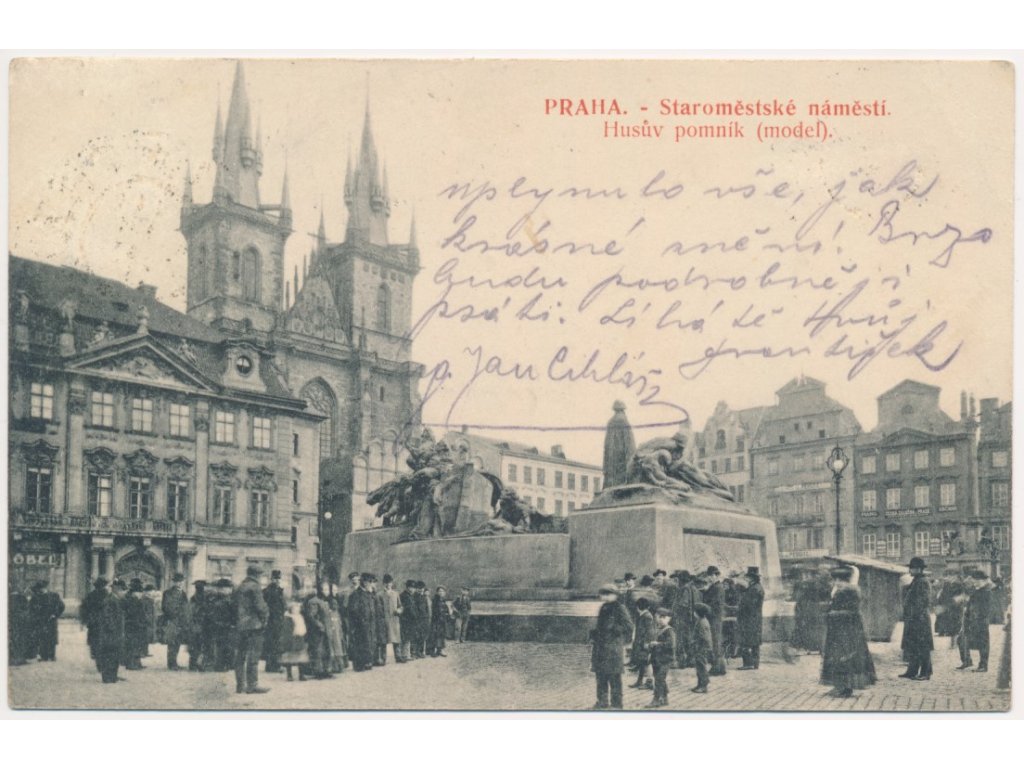 PRAHA. - Staroměstské náměstí.
Husův pomník (model).
uplynulo vše, jak
krásné snění! Brzo
budu podrobněji
psáti. Líbá tě Tvůj
František
Jan Cihlář